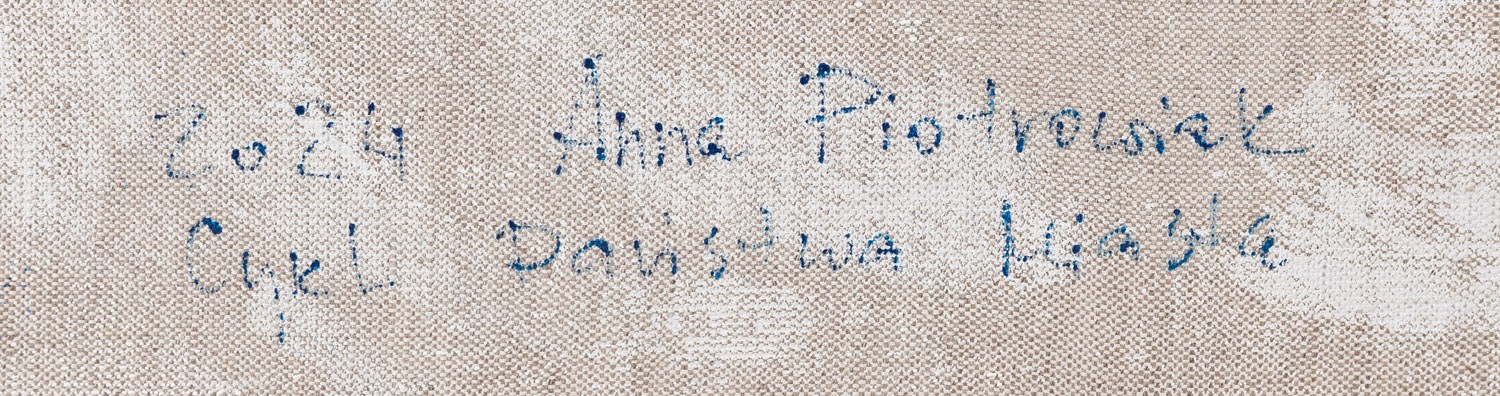 2024 Anna Piotrowiak
Cykl Państwa Miasta